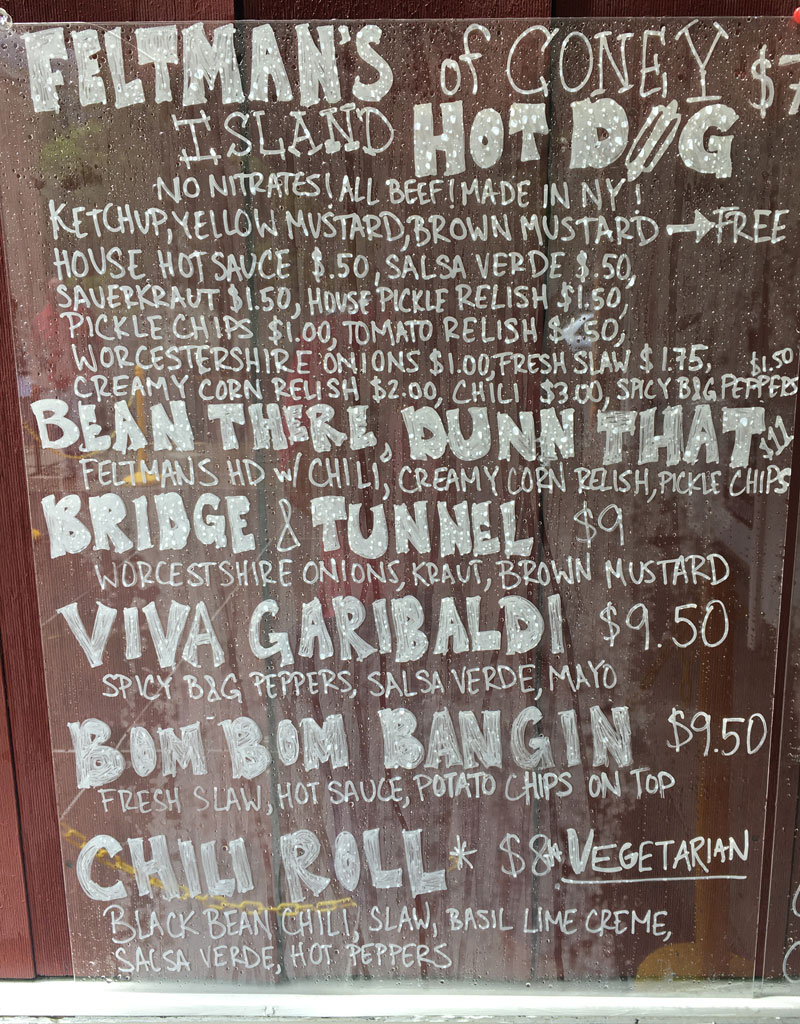 FELTMAN'S of CONEY $7
ISLAND HOT DOG
NO NITRATES! ALL BEEF! MADE IN NY!
KETCHUP, YELLOW MUSTARD, BROWN MUSTARD → FREE
HOUSE HOT SAUCE $.50, SALSA VERDE $.50,
SAUERKRAUT $1.50, HOUSE PICKLE RELISH $1.50,
PICKLE CHIPS $1.00, TOMATO RELISH 50,
WORCESTERSHIRE ONIONS $1.00, FRESH SLAW $1.75, $1.50
CREAMY CORN RELISH $2.00, CHILI $3.00, SPICY B&G PEPPERS
BEAN THERE, DUNN THAT $11
FELTMANS HD W/ CHILI, CREAMY CORN RELISH, PICKLE CHIPS
BRIDGE & TUNNEL $9
WORCESTSHIRE ONIONS, KRAUT, BROWN MUSTARD
VIVA GARIBALDI $9.50
SPICY B&G PEPPERS, SALSA VERDE, MAYO
BOM BOM BANGIN $9.50
FRESH SLAW, HOT SAUCE, POTATO CHIPS ON TOP
CHILI ROLL* $8 *VEGETARIAN
BLACK BEAN CHILI, SLAW, BASIL LIME CREME,
SALSA VERDE, HOT PEPPERS